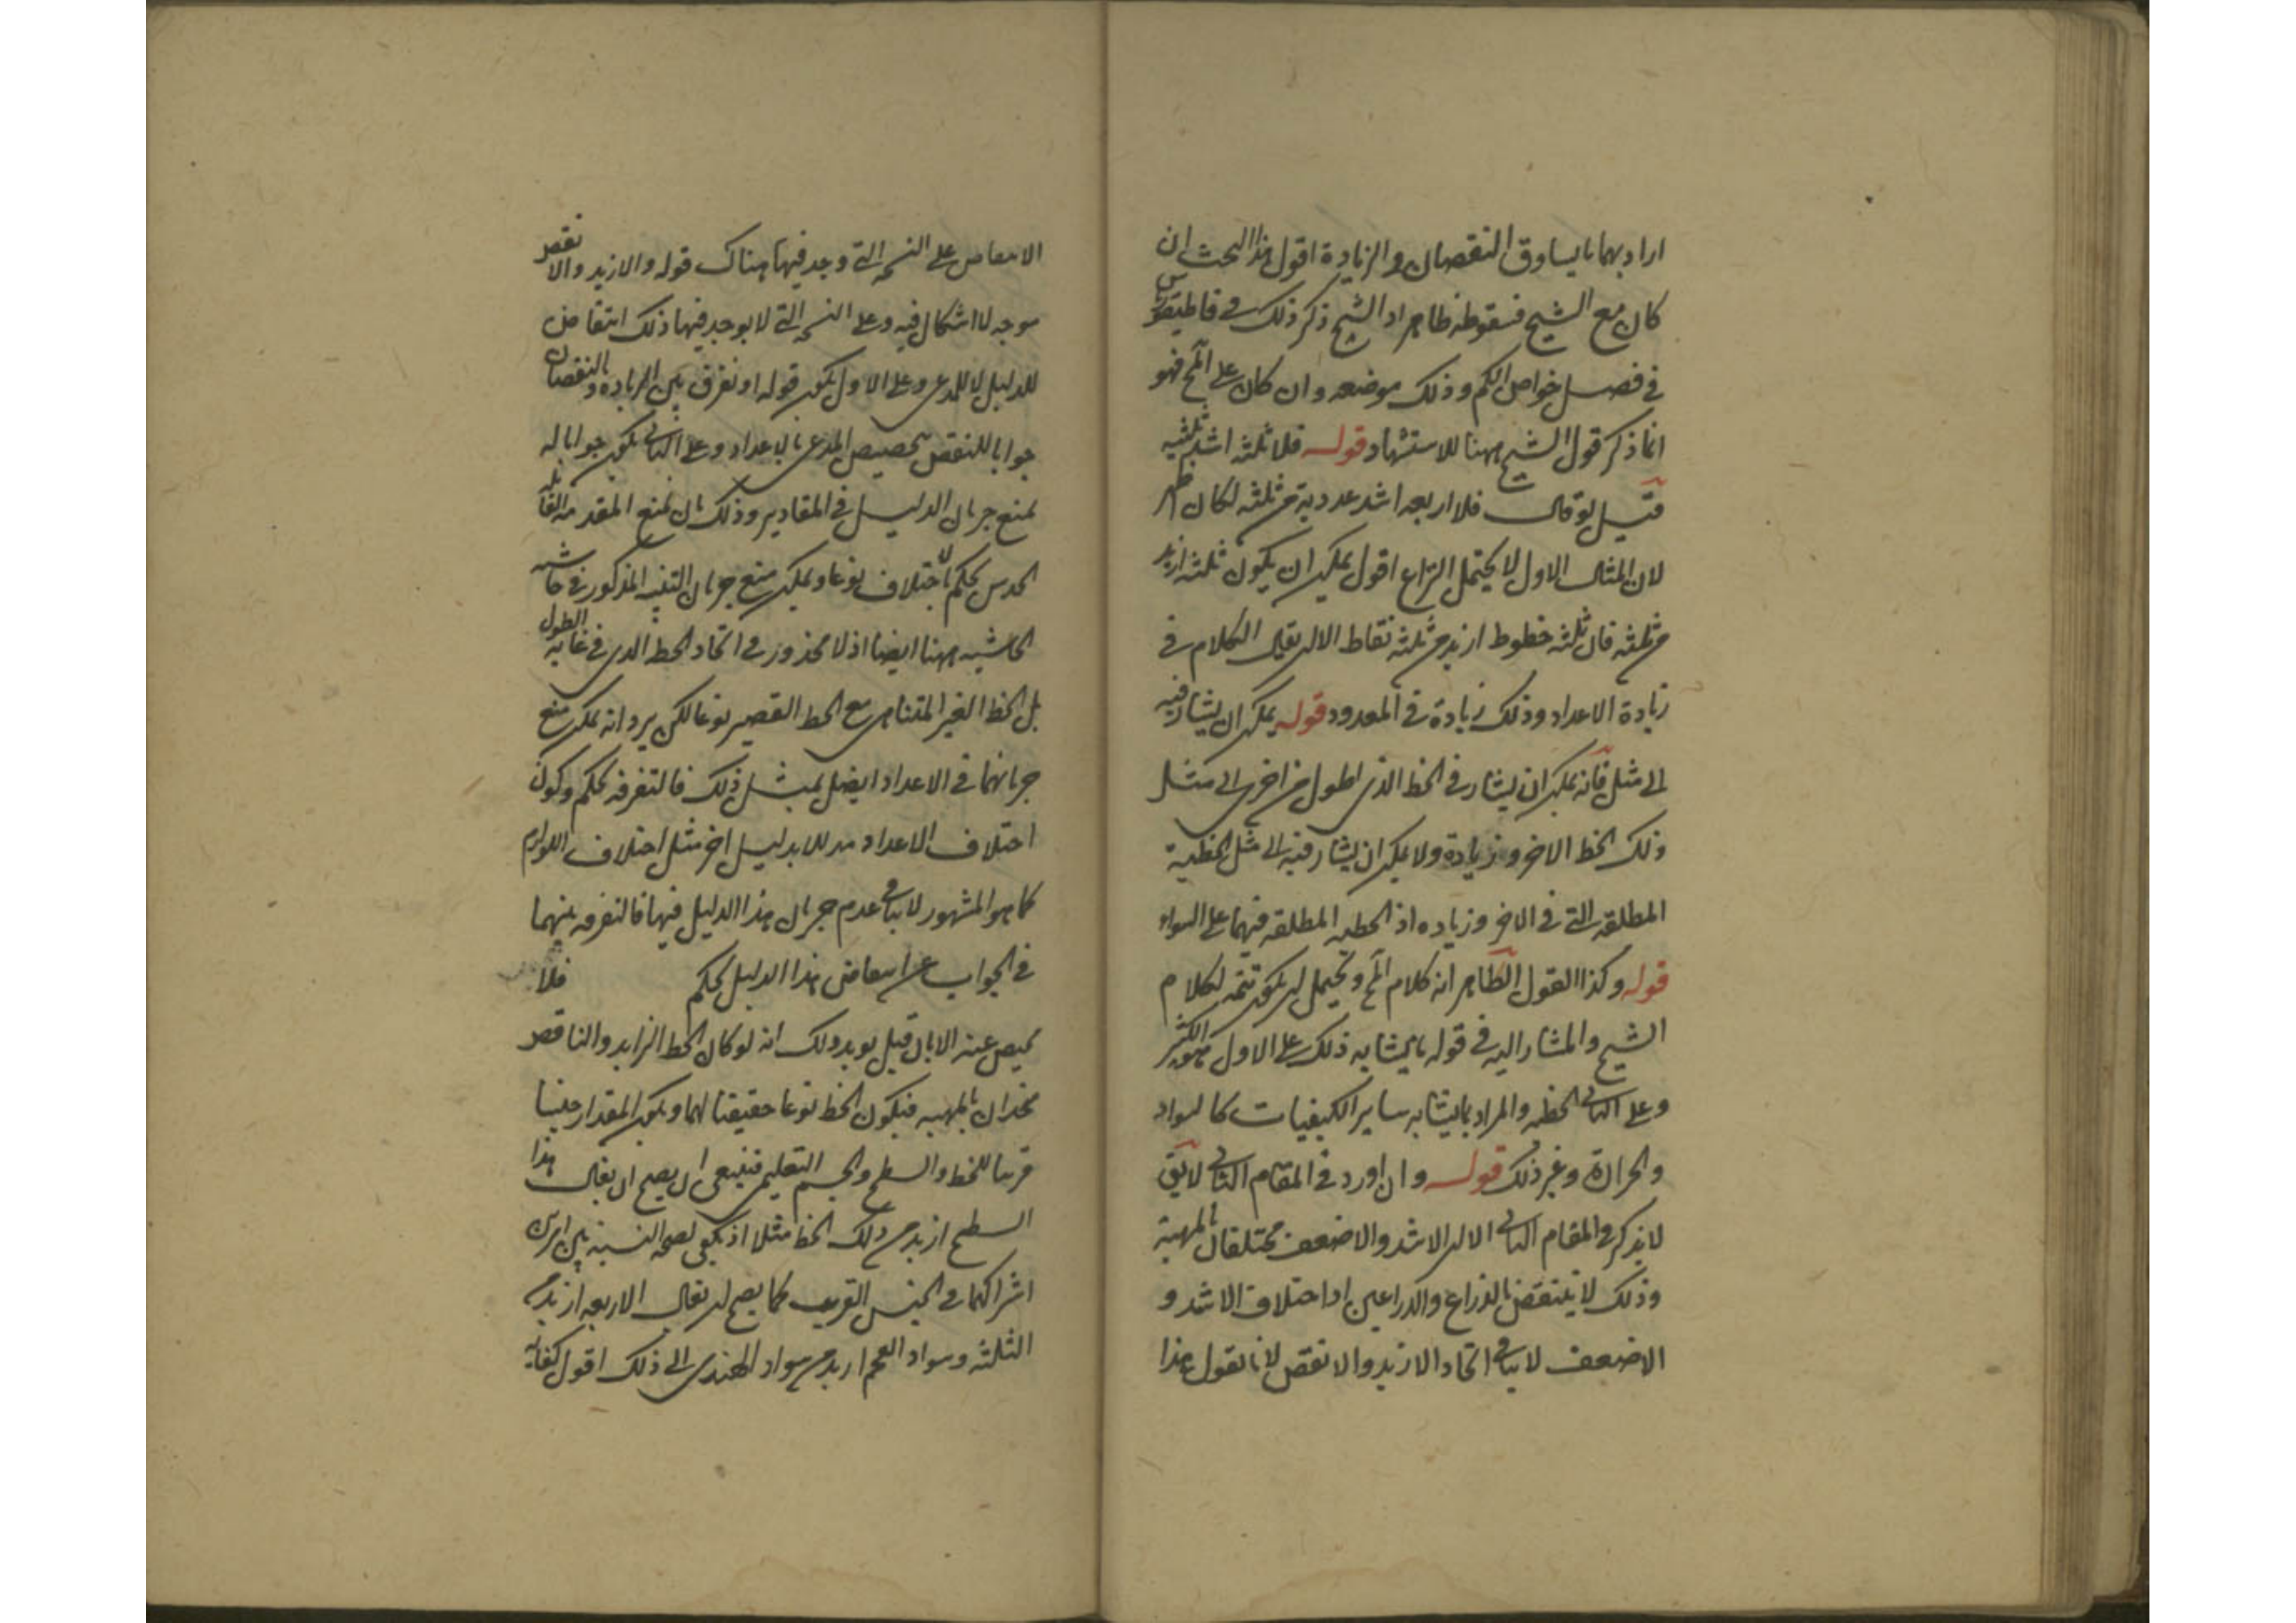 اراد بهما ما يساوق النقصان والزيادة اقول هذا البحث ان
كان مع الشيخ فسقوطه ظاهر اذ الشيخ ذكر ذلك في قاطيغورياس
في فصل خواص الكم وذلك موضعه وان كان على المح فهو
انما ذكر قول الشيخ ههنا للاستشهاد قوله فلا ثلثه اشد ثلثيه
قيل لو قال فلا اربعه اشد عددية من ثلثه لكان اظهر
لان المثال الاول لا يحتمل النزاع اقول يمكن ان يكون ثلثه ازيد
من ثلثه فان ثلثه خطوط ازيد من ثلثه نقاط الا ان يقال الكلام في
زيادة الاعداد وذلك زيادة في المعدود قوله يمكن ان يشار فيه
الى مثل فانه يمكن ان يشار في الخط الذي اطول من اخر الى مثل
ذلك الخط الاخر وزيادة ولا يمكن ان يشار فيه الى مثل الخطية
المطلقه التي في الاخر وزياده اذ الخطيه المطلقه فيهما على السواء
قوله وكذا القول الظاهر انه كلام المح ويحتمل ان يكون تتمه لكلام
الشيخ والمشار اليه في قوله ما يشابه ذلك على الاول هو الكثير
وعلى الثاني الخطيه والمراد بما يشابه ساير الكيفيات كالسواد
والحرارة وغير ذلك قوله وان اورد في المقام الثاني لايق
لا يذكر في المقام الثاني الا ان الاشد والاضعف مختلفان بالمهية
وذلك لا ينتقض بالذراع والذراعين اذ اختلاف الاشد و
الاضعف لا ينافي اتحاد الازيد والانقص لانا نقول هذا
الانتقاض على النسخه التي وجد فيها هناك قوله والازيد والانقص
موجه لا اشكال فيه وعلى النسخه التي لا يوجد فيها ذلك انتقاض
للدليل لا للمدعى وعلى الاول يكون قوله او نفرق بين الزياده والنقصان
جوابا للنقض بتخصيص المدعى بالاعداد وعلى الثاني يكون جوابا له
بمنع جريان الدليل في المقادير وذلك بان نمنع المقدمه القائله
الحدس يحكم باختلاف نوعا ويمكن منع جريان التنبيه المذكور في حاشيه
الحاشيه ههنا ايضا اذ لا محذور في اتحاد الخط الذي في غايه الطول
بل الخط الغير المتناهي مع الخط القصير نوعا لكن يرد انه يمكن منع
جريانهما في الاعداد ايضا بمثل ذلك فالتفرقه تحكم وكون
اختلاف الاعداد مدللا بدليل اخر مثل اختلاف اللوازم
كما هو المشهور لا ينافي عدم جريان هذا الدليل فيها فالتفرقه بينهما
في الجواب عن انتقاض هذا الدليل تحكم فلا
محيص عنه الا بان قيل يويد ذلك انه لو كان الخط الزايد والناقص
متحدان بالمهيه فيكون الخط نوعا حقيقيا لهما ويكون المقدار جنسا
قريبا للخط والسطح والجسم التعليمي فينبغي ان يصح ان يقال هذا
السطح ازيد من ذلك الخط مثلا اذ يكفي لصحه النسبة بين امرين
اشتراكهما في الجنس القريب كما يصح ان يقال الاربعه ازيد من
الثلثه وسواد العجم ازيد من سواد الهندي الى ذلك اقول كفاية